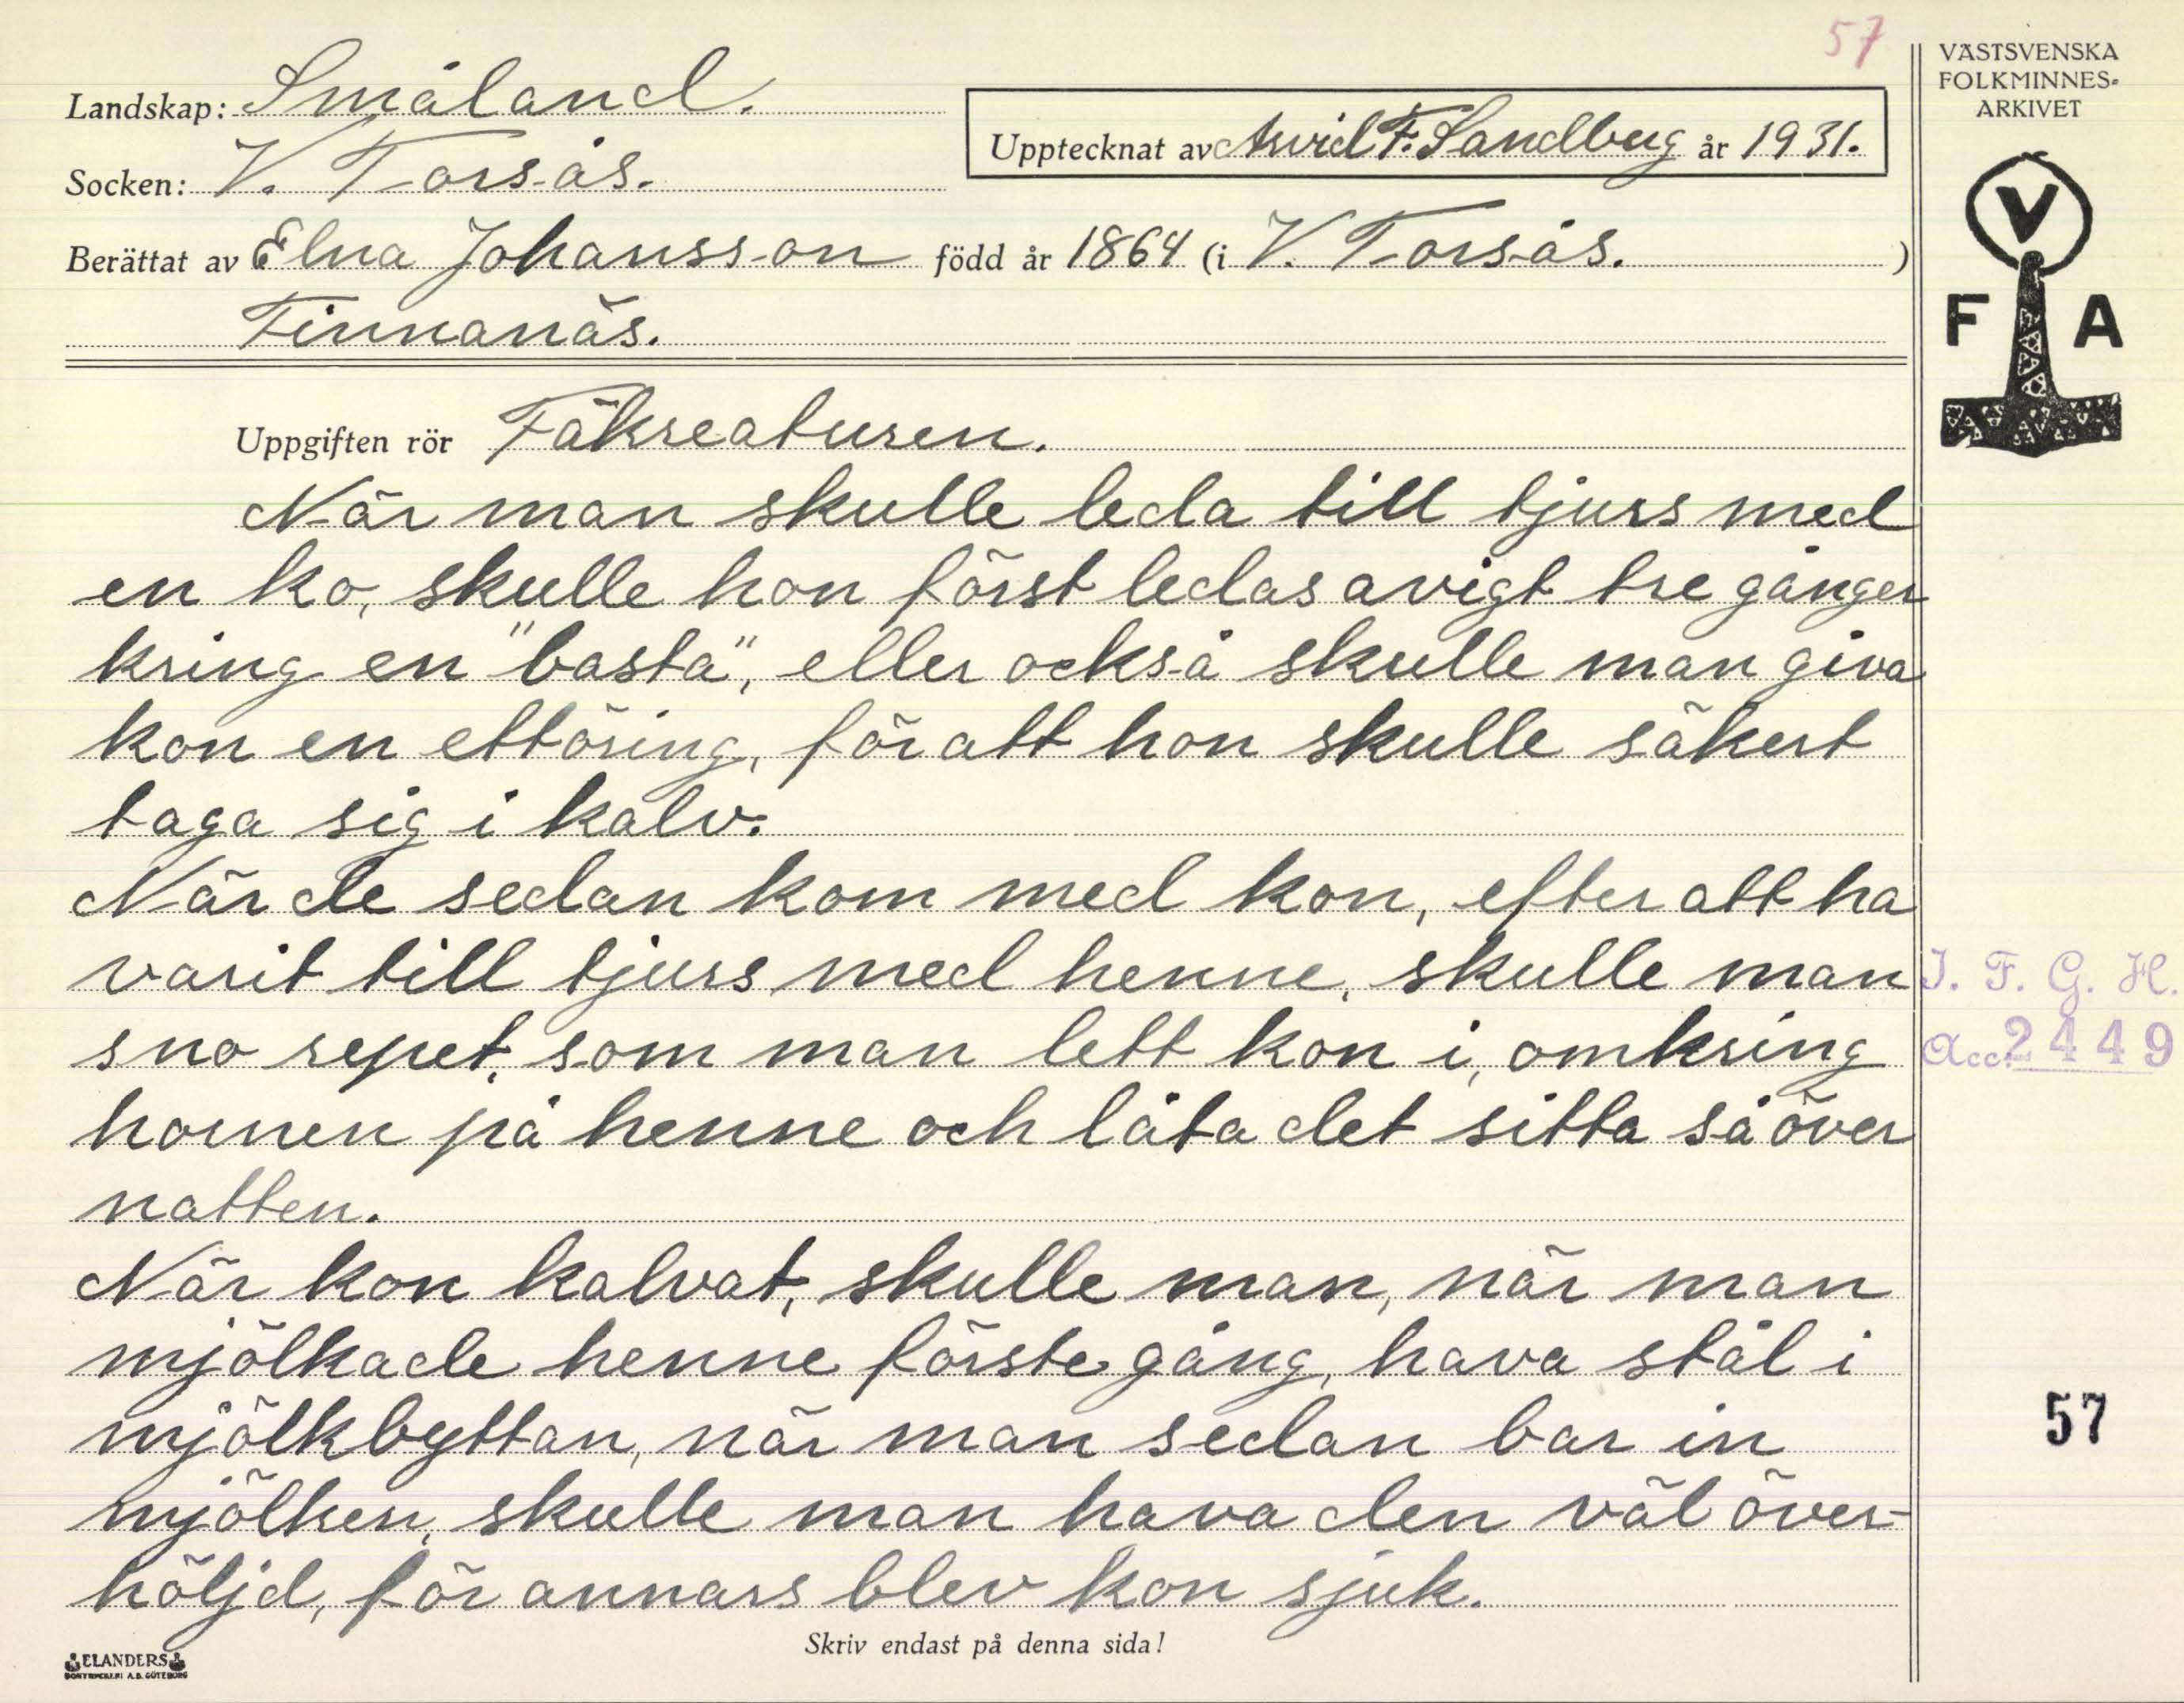 57
VÄSTSVENSKA
FOLKMINNES-
ARKIVET
Landskap: Småland.
Upptecknat av Arvid F. Sandberg år 1931.
Socken: V. Torsås.
Berättat av Elna Johansson född år 1864 (i V. Torsås. )
Finnanäs.
V
F A
Uppgiften rör Fäkreaturen.
När man skulle leda till tjurs med
en ko, skulle hon först ledas avigt tre gånger
kring en "basta", eller också skulle man giva
kon en ettöring, för att hon skulle säkert
taga sig i kalv.
När de sedan kom med kon, efter att ha
varit till tjurs med henne, skulle man
sno repet, som man lett kon i, omkring
hornen på henne och låta det sitta så över
natten.
När kon kalvat, skulle man, när man
mjölkade henne förste gång, hava stål i
mjölkbyttan, när man sedan bar in
mjölken, skulle man hava den väl över-
höljd, för annars blev kon sjuk.
I. F. G. H.
Acc. 2449
57
Skriv endast på denna sida!
ELANDERS
BOKTRYCKERI A.B. GÖTEBORG